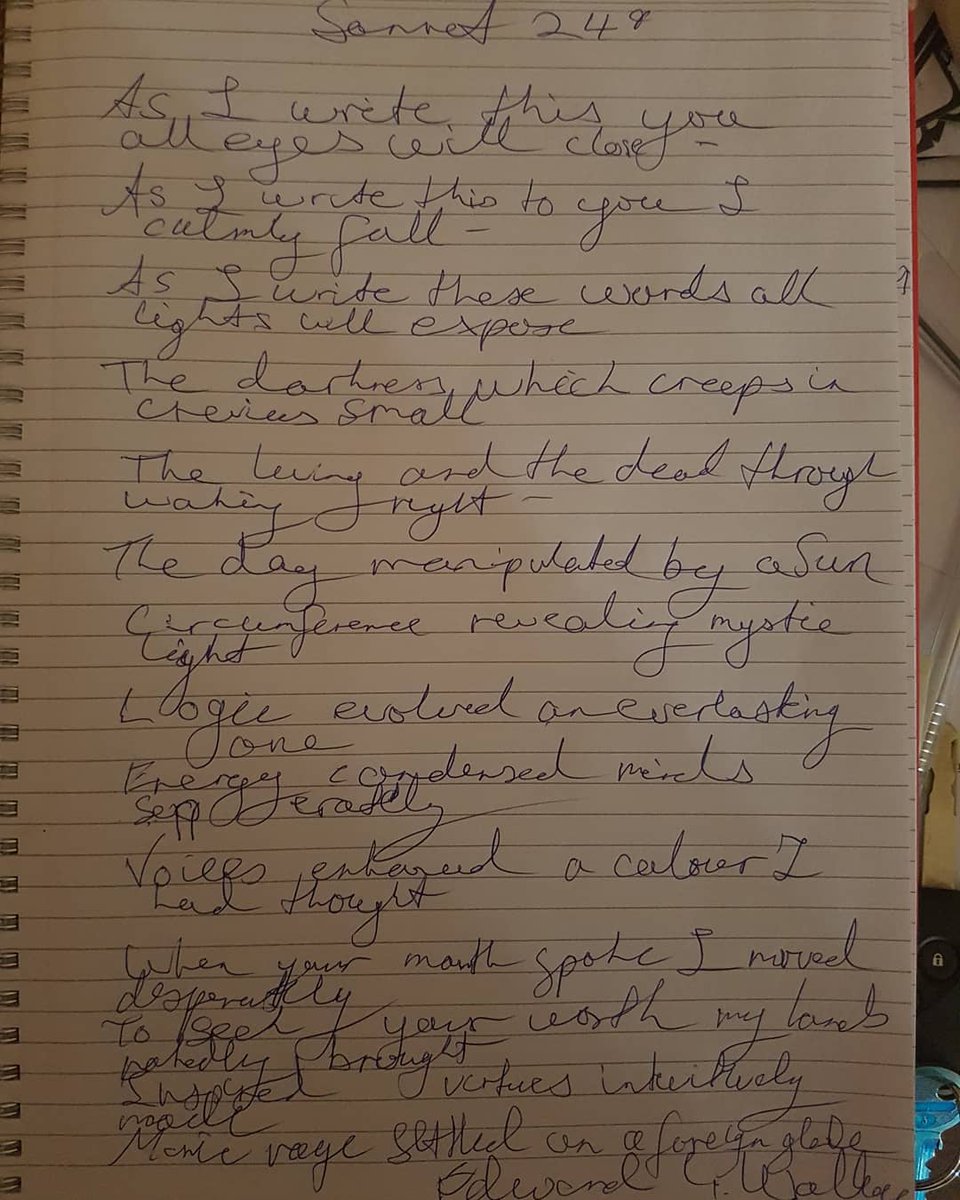 Sonnet 248
As I write this you
all eyes will close -
As I write this to you I
calmly fall -
As I write these words all
lights will expose
The darkness which creeps in
crevices small
The living and the dead through
waking fright -
The day manipulated by a Sun
Circumference revealing mystic
light
Logic evolved an everlasting
one
Energy condensed minds
Voices enhanced a colour I
had thought
When your mouth spoke I moved
desperately
To seek your worth my
nakedly brought
Inspired virtues intuitively
made
Manic rage settled on a foreign glade
Edward G.